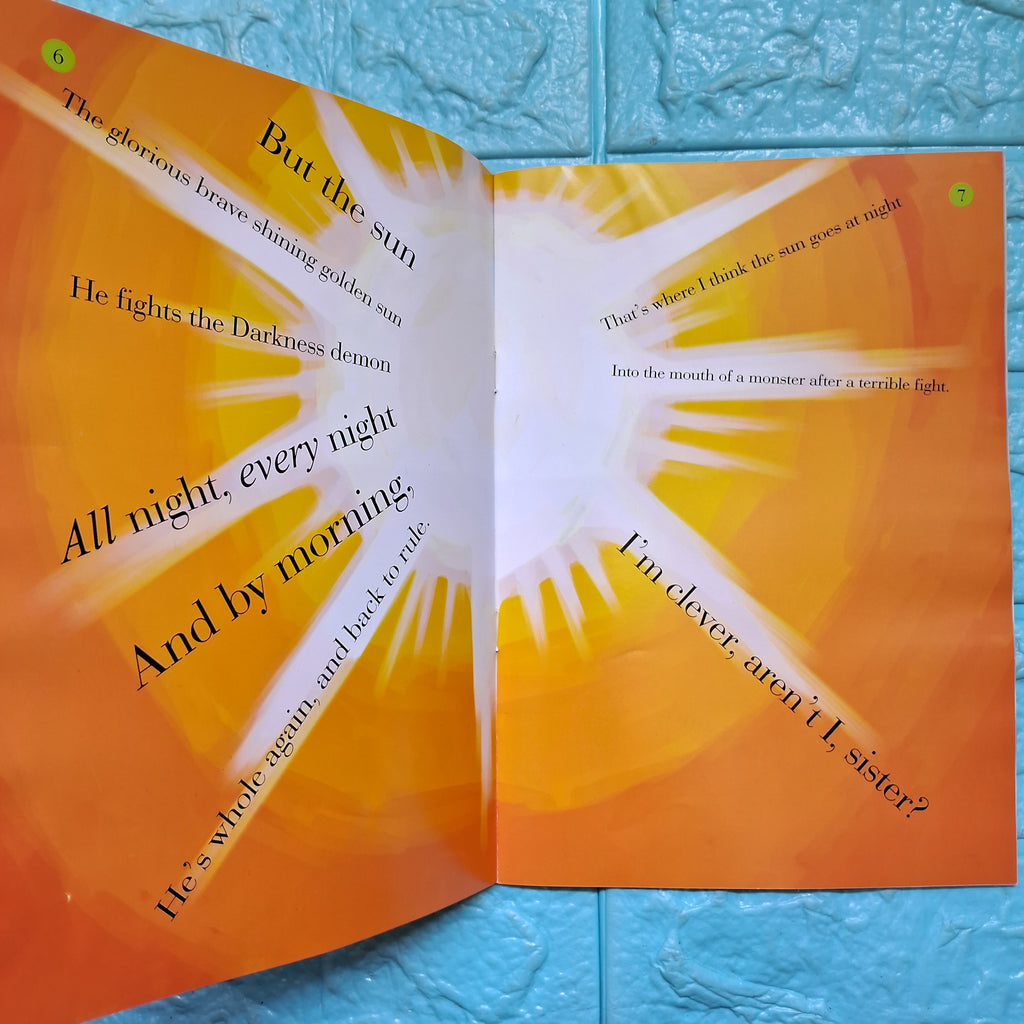 6
But the sun
The glorious brave shining golden sun
He fights the Darkness demon
All night, every night
And by morning,
He's whole again, and back to rule.
7
That's where I think the sun goes at night
Into the mouth of a monster after a terrible fight.
I'm clever, aren't I, sister?